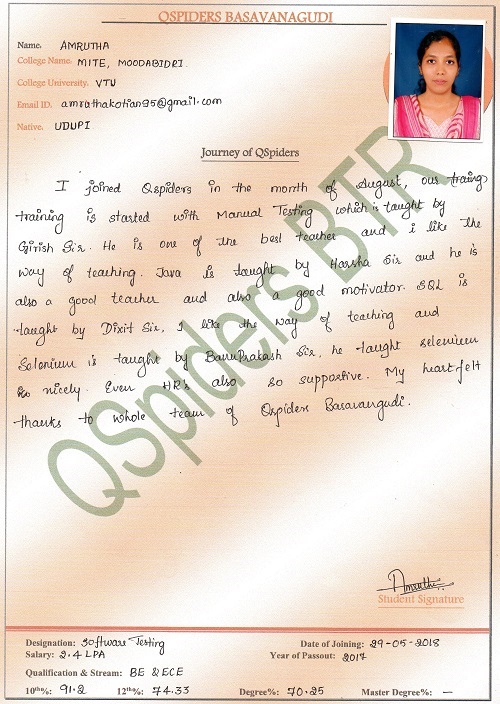 QSPIDERS BASAVANAGUDI
Name. AMRUTHA
College Name. MITE, MOODABIDRI.
College University. VTU
Email ID. amruthakotian95@gmail.com
Native. UDUPI
Journey of QSpiders
I joined Qspiders in the month of August, our traing
training is started with Manual Testing which is taught by
Girish Sir. He is one of the best teacher and i like the
way of teaching. Java is taught by Harsha Sir and he is
also a good teacher and also a good motivator. SQL is
taught by Dixit Sir, I like the way of teaching and
Selenium is taught by BanuPrakash Sir, he taught selenium
so nicely. Even HR's also so supportive. My heartfelt
thanks to whole team of Qspiders Basavangudi.
QSpiders BTR
Amrutha
Student Signature
Designation: Software Testing Date of Joining: 29-05-2018
Salary: 2.4 LPA Year of Passout: 2017
Qualification & Stream: BE & ECE
10th%: 91.2 12th%: 74.33 Degree%: 70.25 Master Degree%: —